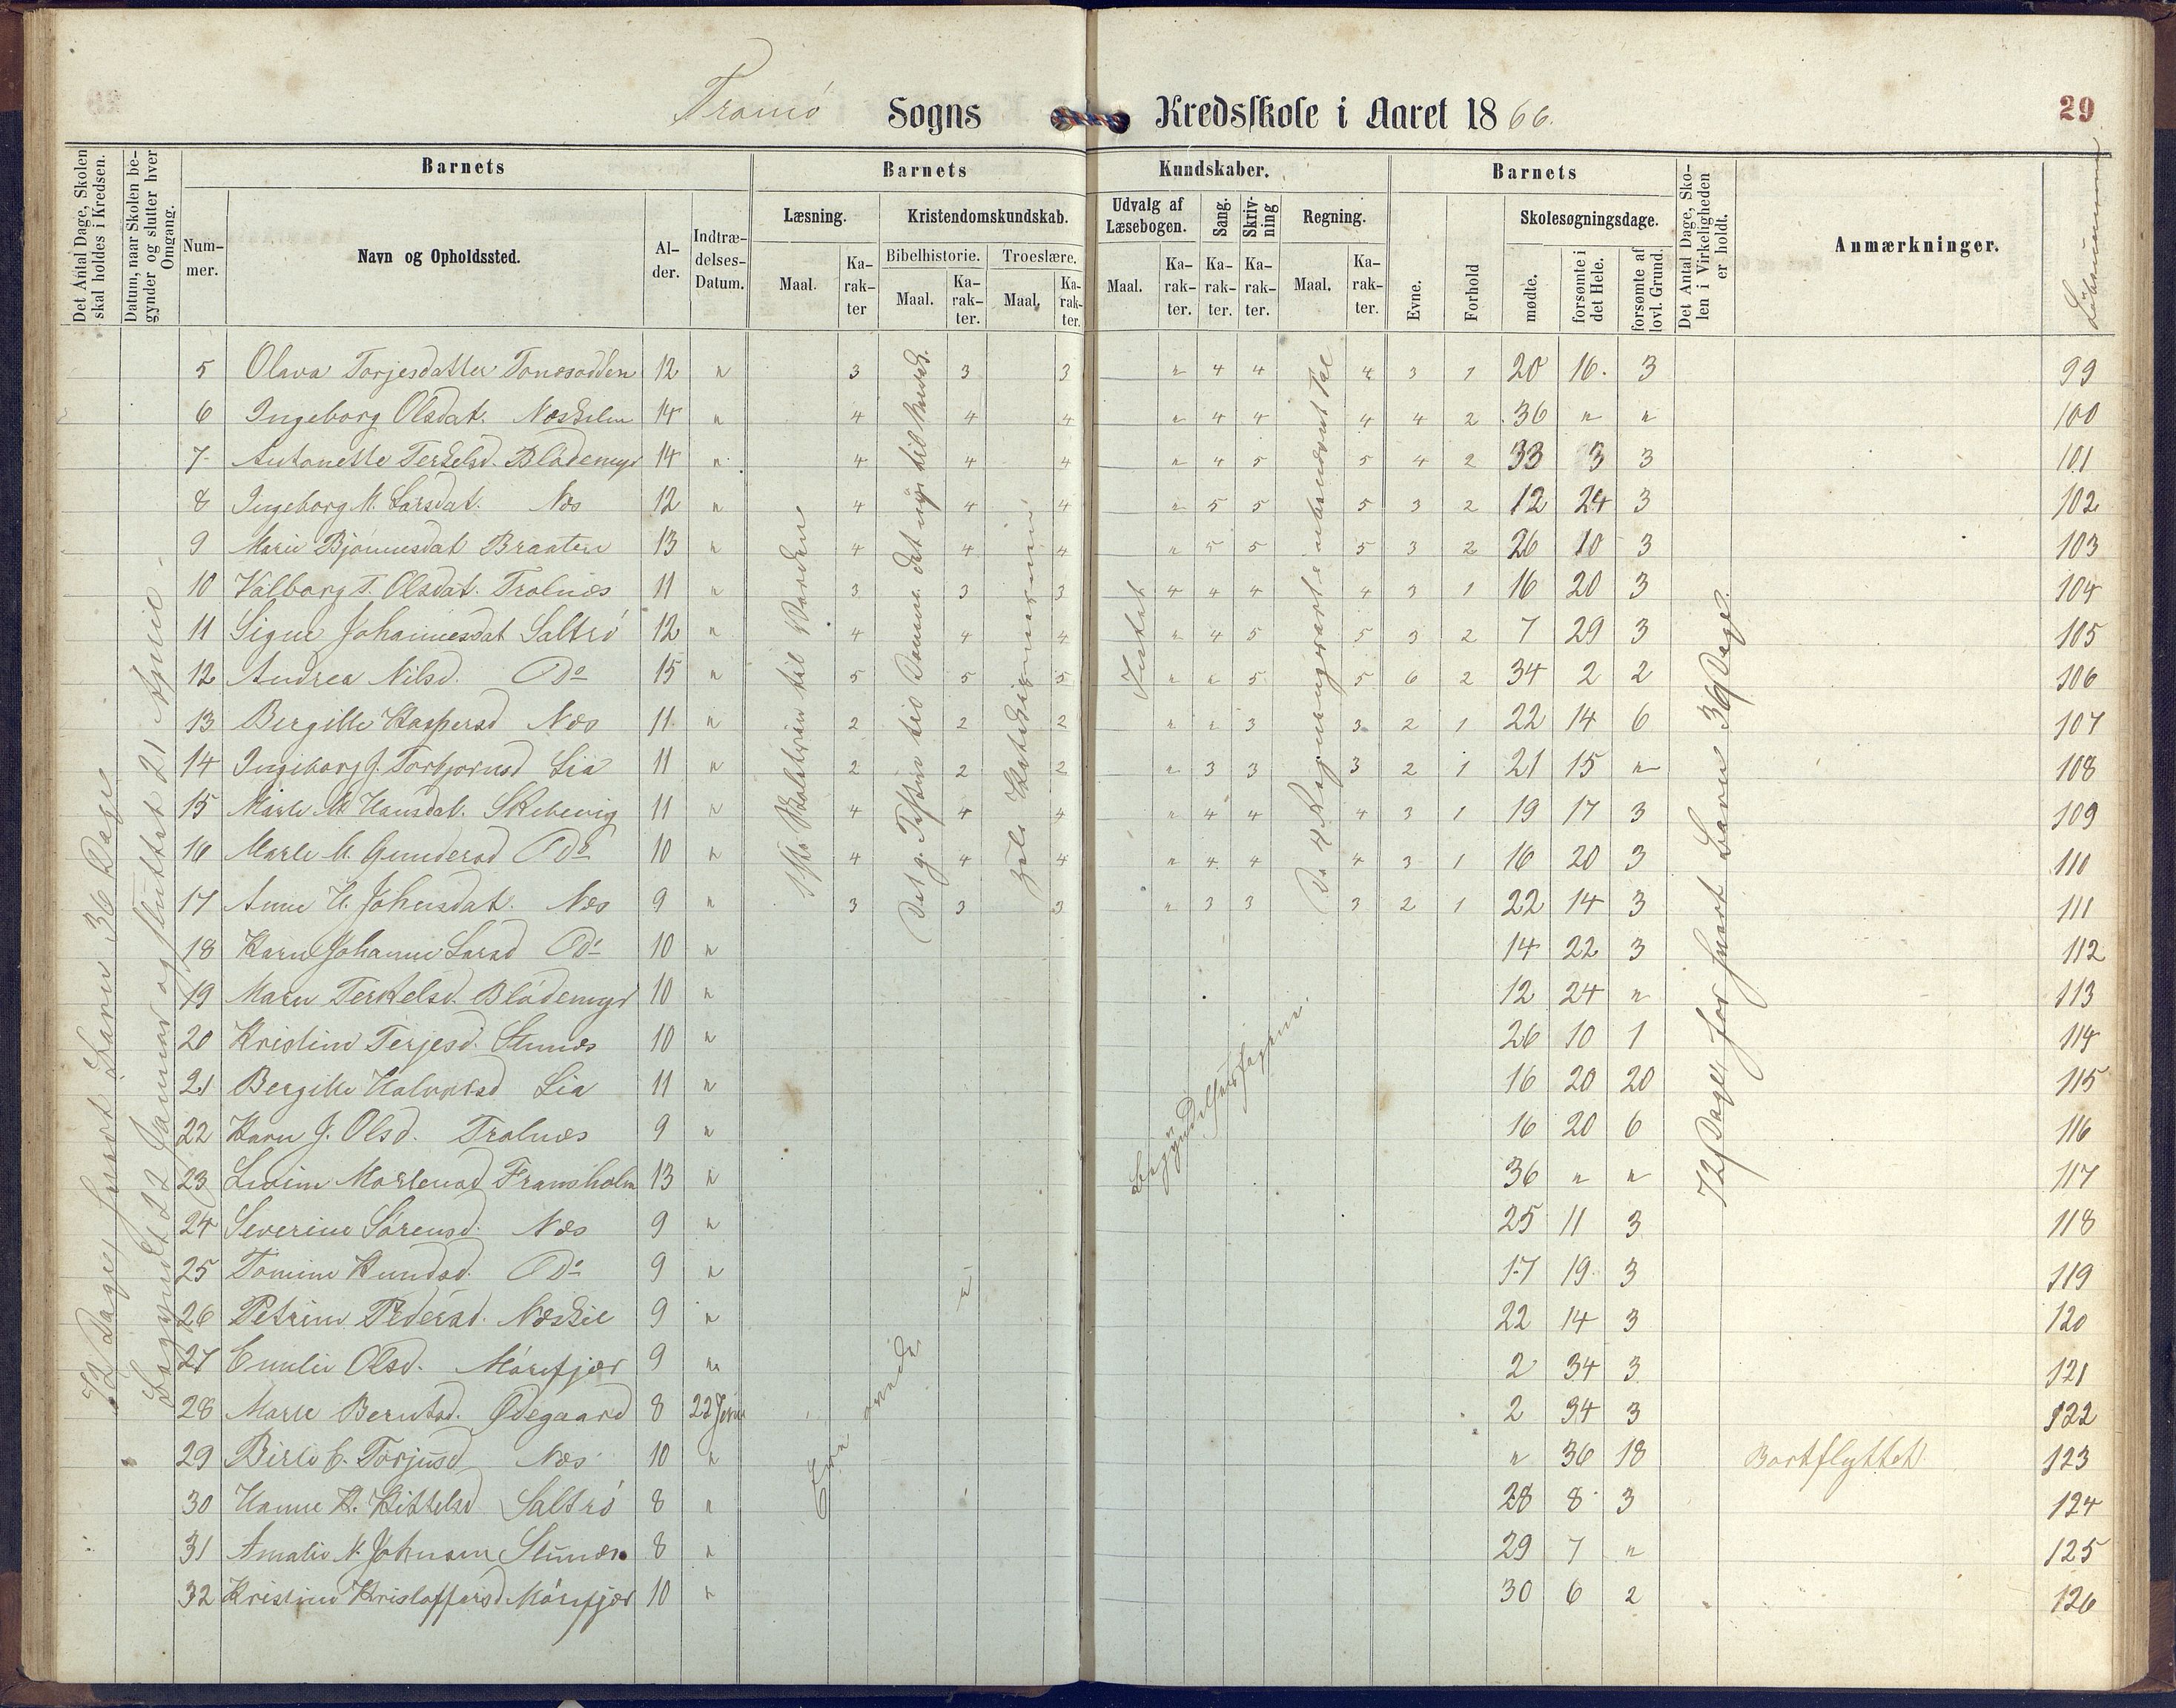 Tromö Sogns Kredsskole i Aaret 1866.
29
Det Antal Dage, Skolen skal holdes i Kredsen.
Datum, naar Skolen begynder og slutter hver Omgang.
Barnets
Nummer.
Navn og Opholdssted.
Alder.
Indtrædelses-Datum.
Barnets Kundskaber.
Læsning.
Maal.
Karakter
Kristendomskundskab.
Bibelhistorie.
Maal.
Karakter.
Troeslære.
Maal.
Karakter.
Udvalg af Læsebogen.
Maal.
Karakter.
Sang.
Karakter.
Skrivning
Karakter.
Regning.
Maal.
Karakter.
Barnets
Evne.
Forhold
Skolesøgningsdage.
mødte.
forsømte i det Hele.
forsømte af lovl. Grund.
Det Antal Dage, Skolen i Virkeligheden er holdt.
Anmærkninger.
Löbenummer
72 Dage, hvert Barn 36 Dage
Begyndt 22 Januar og sluttet 21 April
Intet
Begyndelsesfagene.
72 Dage, for hvert Barn 36 Dage.
5 Olava Torjesdatter 12 " 3 3 3 " 4 4 4 3 1 20 16 3 99
6 Ingeborg Olsdat. Neskilen 14 " 4 4 4 " 4 4 4 4 2 36 " " 100
7 Antonette Terkelsd. Blödemyr 14 " 4 4 4 " 4 5 5 4 2 33 3 3 101
8 Ingeborg M. Larsdat. Nes 12 " 4 4 4 " 5 5 5 3 2 12 24 3 102
9 Marie Bjömnesdat Braaten 13 " 4 4 4 " 5 5 5 3 2 26 10 3 103
10 Valborg T. Olsdat. Trolnes 11 " 3 3 3 4 4 4 4 3 1 16 20 3 104
11 Signe Johannesdat Saltrö 12 " 4 4 4 " 4 5 5 3 2 7 29 3 105
12 Andrea Nilsd. Do 15 " 5 5 5 " " 5 5 6 2 34 2 2 106
13 Bergitte Kaspersd Nes 11 " 2 2 2 " " 3 3 2 1 22 14 6 107
14 Ingeborg J. Torbjornsd Lia 11 " 2 2 2 " 3 3 3 2 1 21 15 " 108
15 Marte M. Hansdat. Skibevig 11 " 4 4 4 " 4 4 4 3 1 19 17 3 109
16 Marte M. Gundersd Do 10 " 4 4 4 " 4 4 4 3 1 16 20 3 110
17 Anne H. Johnsdat. Nes 9 " 3 3 3 " 3 3 3 2 1 22 14 3 111
18 Karen Johanne Larsd Do 10 " 14 22 3 112
19 Maren Terkelsd. Blödemyr 10 " 12 24 " 113
20 Kristine Terjesd. Stunes 10 " 26 10 1 114
21 Bergitte Halvorsd Lia 11 " 16 20 20 115
22 Karen J. Olsd. Trolnes 9 " 16 20 6 116
23 Lovine Mortensd Fransholm 13 " 36 " " 117
24 Severine Sörensd. Nes 9 " 25 11 3 118
25 Tomine Knudsd. Do 9 " 17 19 3 119
26 Petrine Pedersd. Neskil 9 " 22 14 3 120
27 Emilie Olsd. Mörefjær 9 " 2 34 3 121
28 Marte Berntsd. Ødegaard 8 22 Janua 2 34 3 122
29 Birte C. Torjusd Nes 10 " " 36 18 Bortflyttet 123
30 Hanne K. Kittelsd Saltrö 8 " 28 8 3 124
31 Amalie N. Johnsen Stunes 8 " 29 7 " 125
32 Kristine Kristoffersd Mörefjær 10 " 30 6 2 126